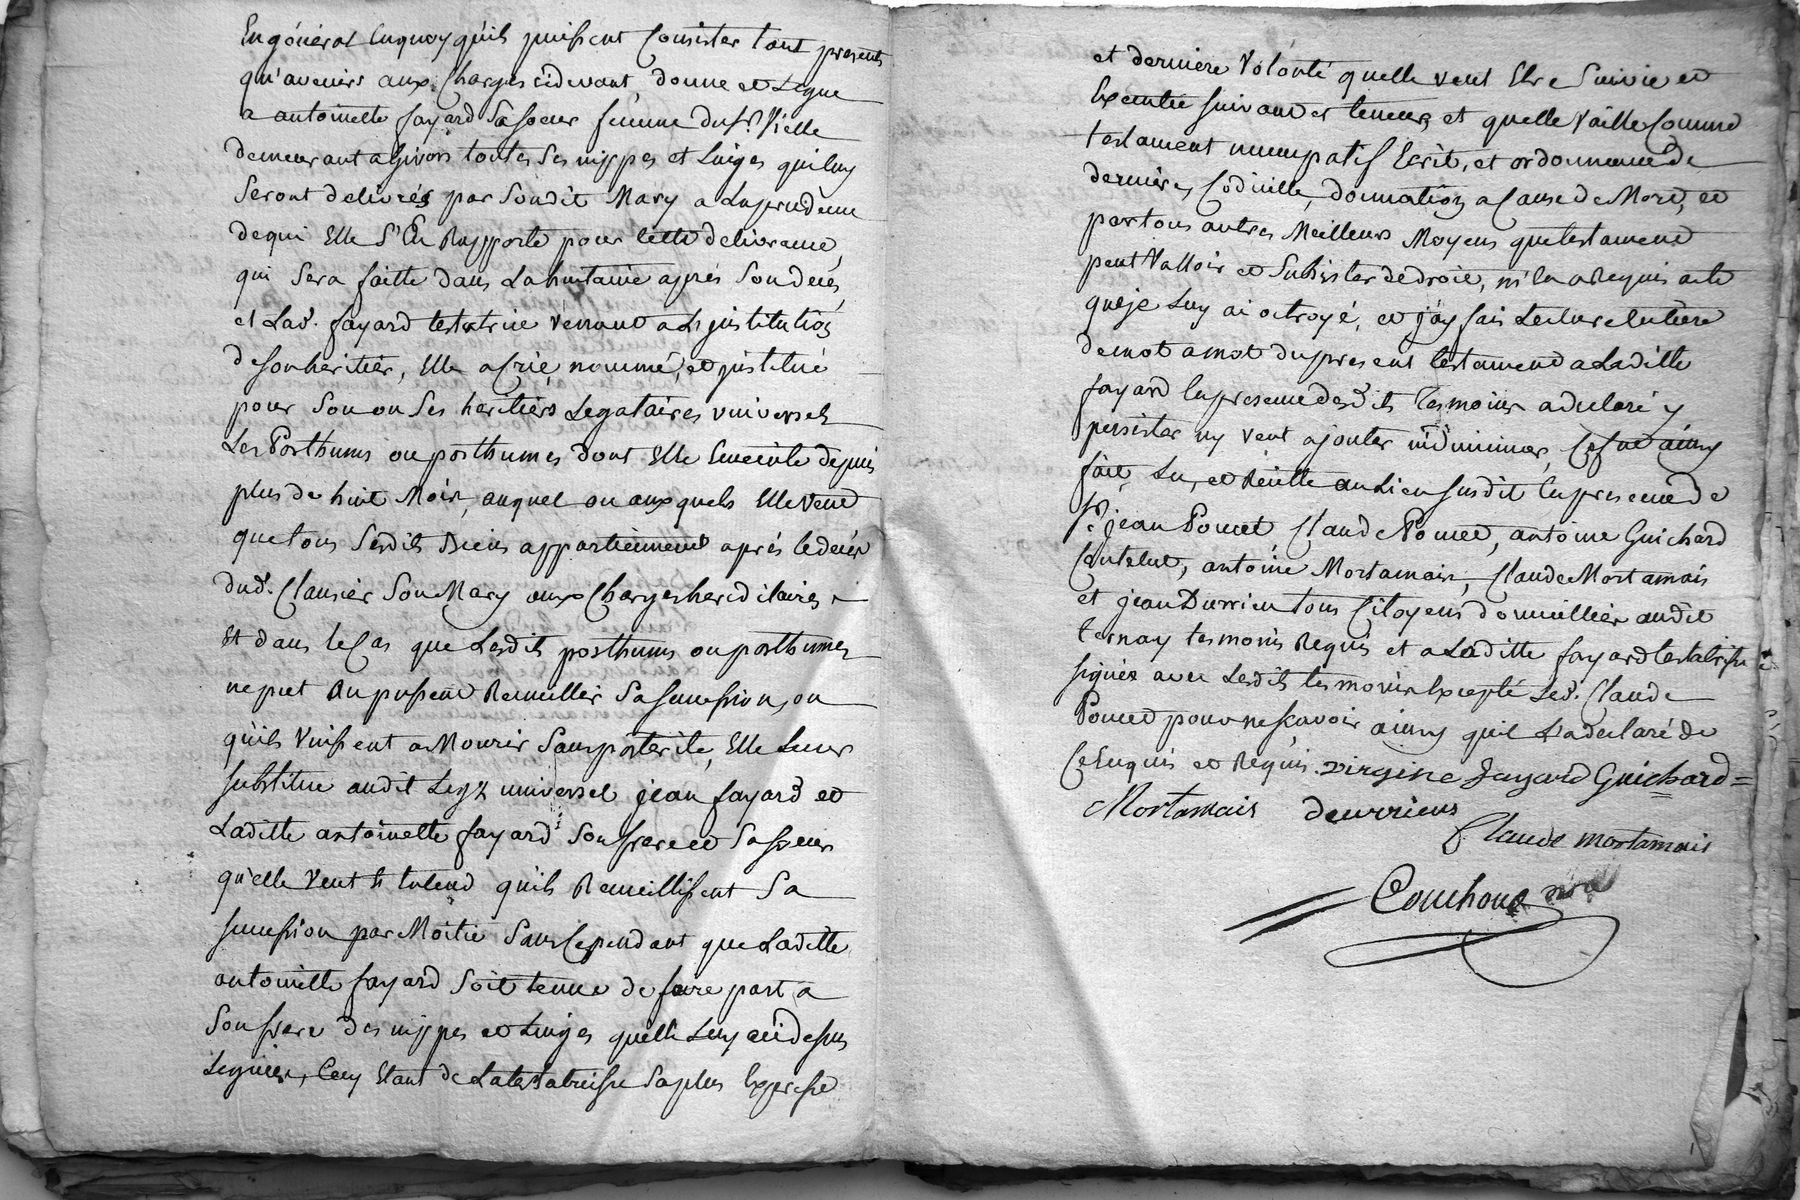 En général enquoy quils puissent Consister tant presents
qu'avenirs aux Charges cidevant, donne et Legue
a antoinette fayard Sa soeur femme du sr. Vielle
demeurant a givors toutes Ses nippes et Linges qui luy
Seront delivrés par Sondit Mary a Laprudence
dequi Elle S'En Rapporte pour Cette delivrance,
qui Sera faitte dans La huitaine aprés Son decés,
et Lad. fayard testatrice Venant a L'institution
de Son heritier, Elle a Créé, nommé, et institué
pour Son ou Ses heritiers Legataires universels
Les Posthums ou posthumes dont Elle Enceinte depuis
plus de huit Mois, auquel ou auxquels Elle Veut
que tous Sesdits Biens appartiennent aprés le decés
dud. Clausier Son Mary aux Charges hereditaires
Et dans le Cas que Lesdits posthums ou posthumes
ne put ou pussent Recueillir Sa succession, ou
quils Vinssent a Mourir Sans posterité, Elle Leur
substitue audit Legz universel jean fayard et
Laditte antoinette fayard Son frere et Sa soeur
qu'elle Veut et Entend quils Recueillissent Sa
succession par Moitié Sans Cependant que Laditte
antoinette fayard Soit tenue de faire part a
Son frere des nippes et Linges quelle Luy a cidessus
Legués, Cecy Etant de La testatrice Sa plus Expresse
et derniere Volonté quelle veut Etre Suivie et
Executée suivant ses teneur, et quelle Vaille Comme
testament nuncupatif Ecrit, et ordonnance de
derniere, Codicille, donnation a Cause de Mort, et
par tous autres Meilleurs Moyens que testament
peut Valloir et Subsister de droit, m'En a Requis acte
que je Luy ai octroyé, et j'ay fait Lecture Entiere
de mot a mot du present testament a Laditte
fayard En presence desdits temoins a declaré y
persister ny veut ajouter ni diminuer, Ce fut ainsy
fait, Lu, et Recitté au Lieu susdit En presence de
sr. jean Poncet, Claude Poncet, antoine Guichard
Cantelut, antoine Mortamais, Claude Mortamais
et jean Durrieu tous Citoyens domicilliés audit
ternay temoins Requis et a Laditte fayard testatrice
signés avec Lesdits temoins Excepté Led. Claude
Poncet pour ne sçavoir ainsy quil L'a declaré de
Ce Enquis et Requis. virgine fayard Guichard
Mortamais deurrieus
Claude mortamais
Couchoud nre